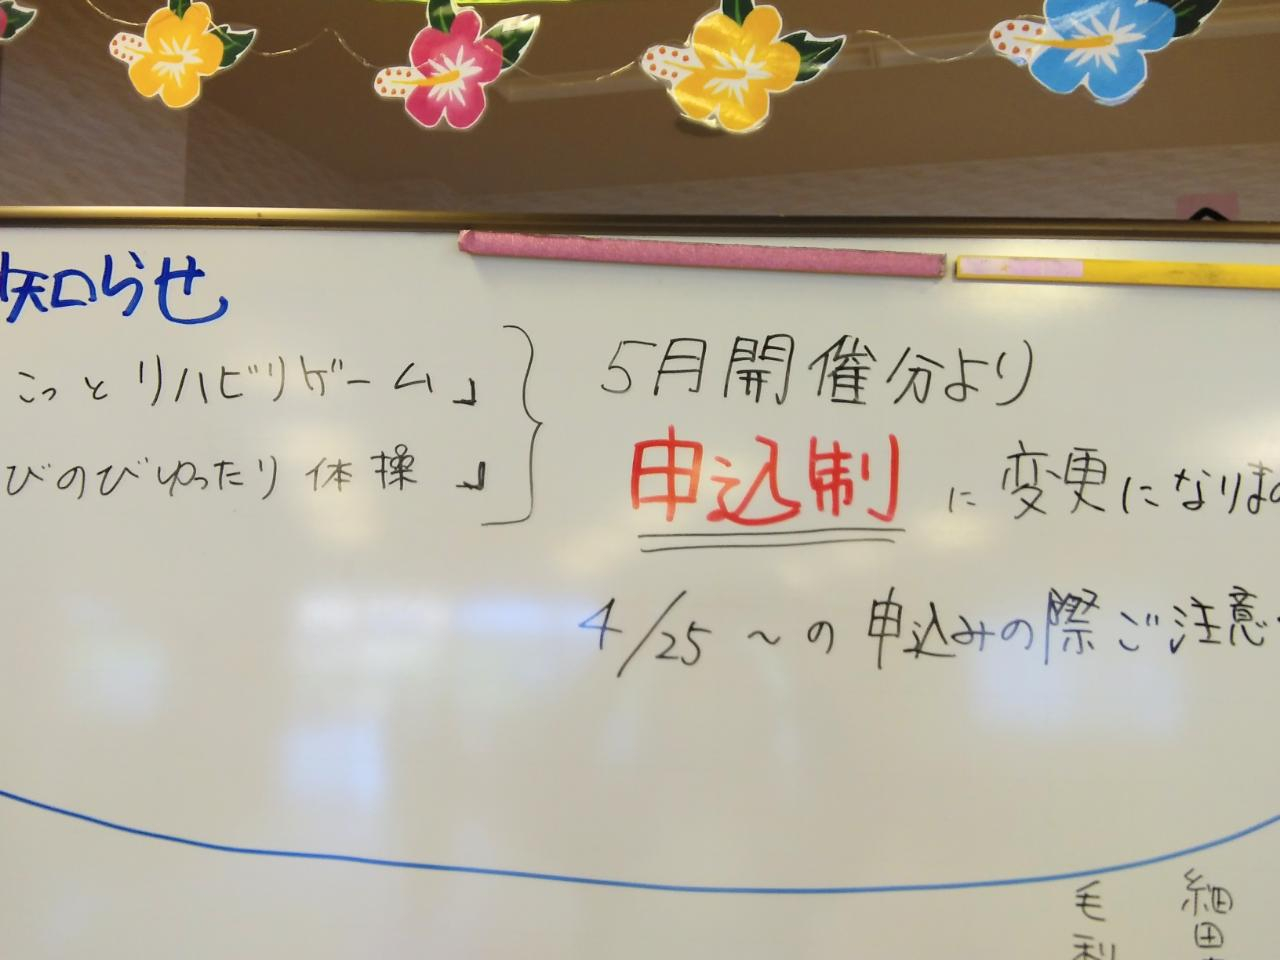 知らせ
こっとリハビリゲーム」
びのびゆったり体操」
5月開催分より
申込制に変更になりま
4/25～の申込みの際ご注意
毛利
細田